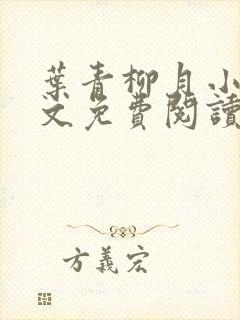 葉青柳月小
文免費閱讀
方義宏